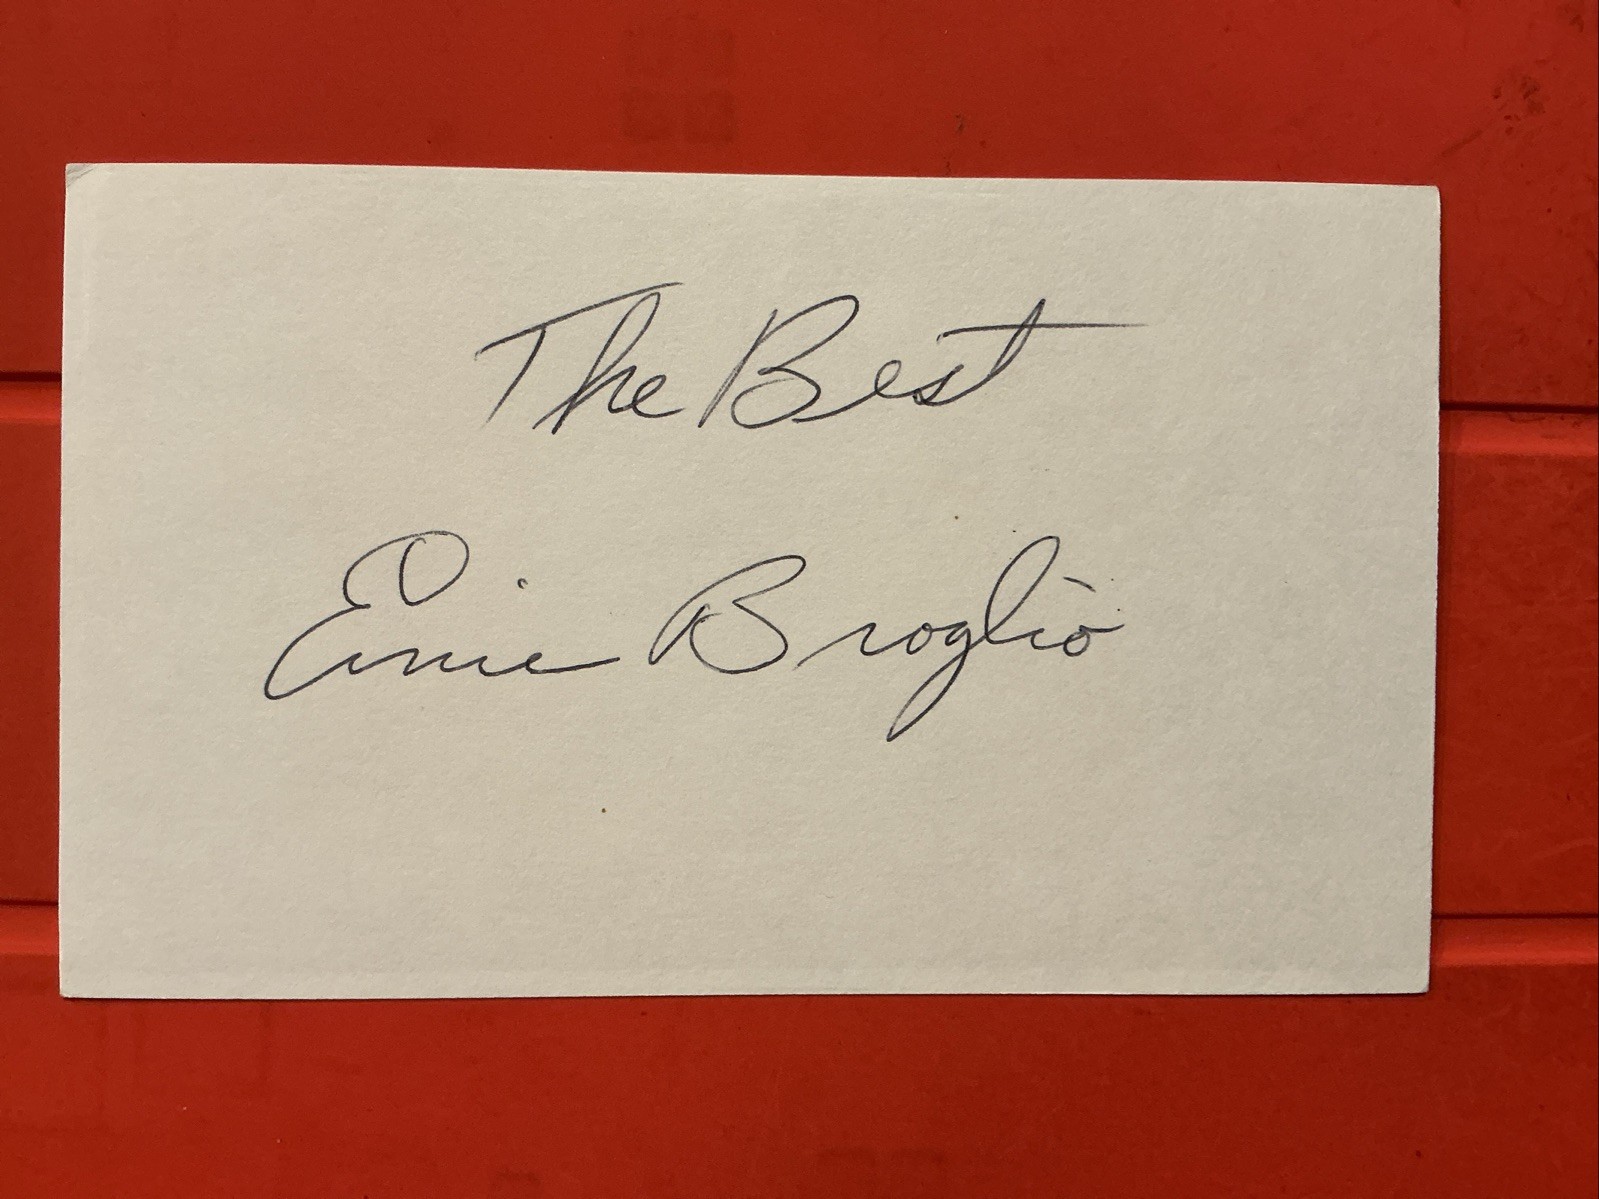 The Best
Ernie Broglio